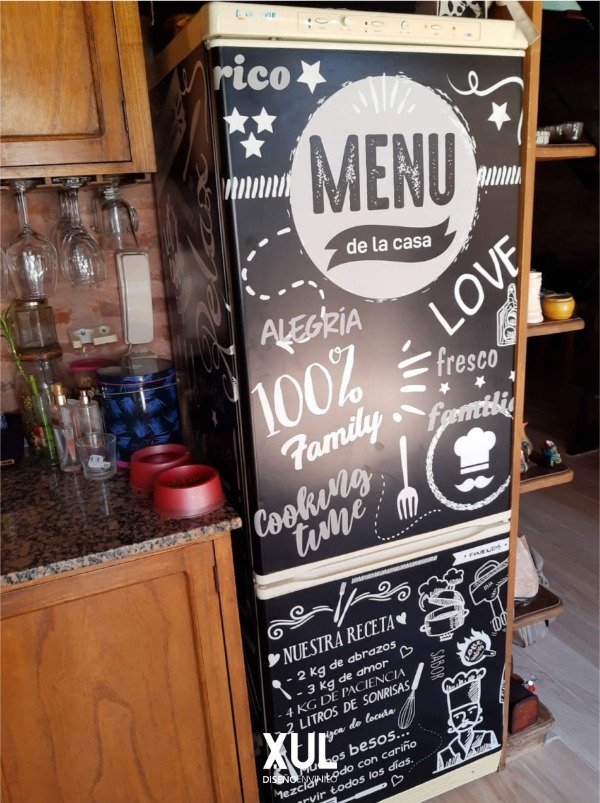 rico
MENU
de la casa
LOVE
ALEGRÍA
100%
Family
fresco
familia
cooking
time
FRIENDS
NUESTRA RECETA
- 2 Kg de abrazos
- 3 Kg de amor
- 4 KG DE PACIENCIA
2 LITROS DE SONRISAS
de locura
besos...
Mezclar todo con cariño
servir todos los días.
SABOR
XUL
DISEÑOENVINILO